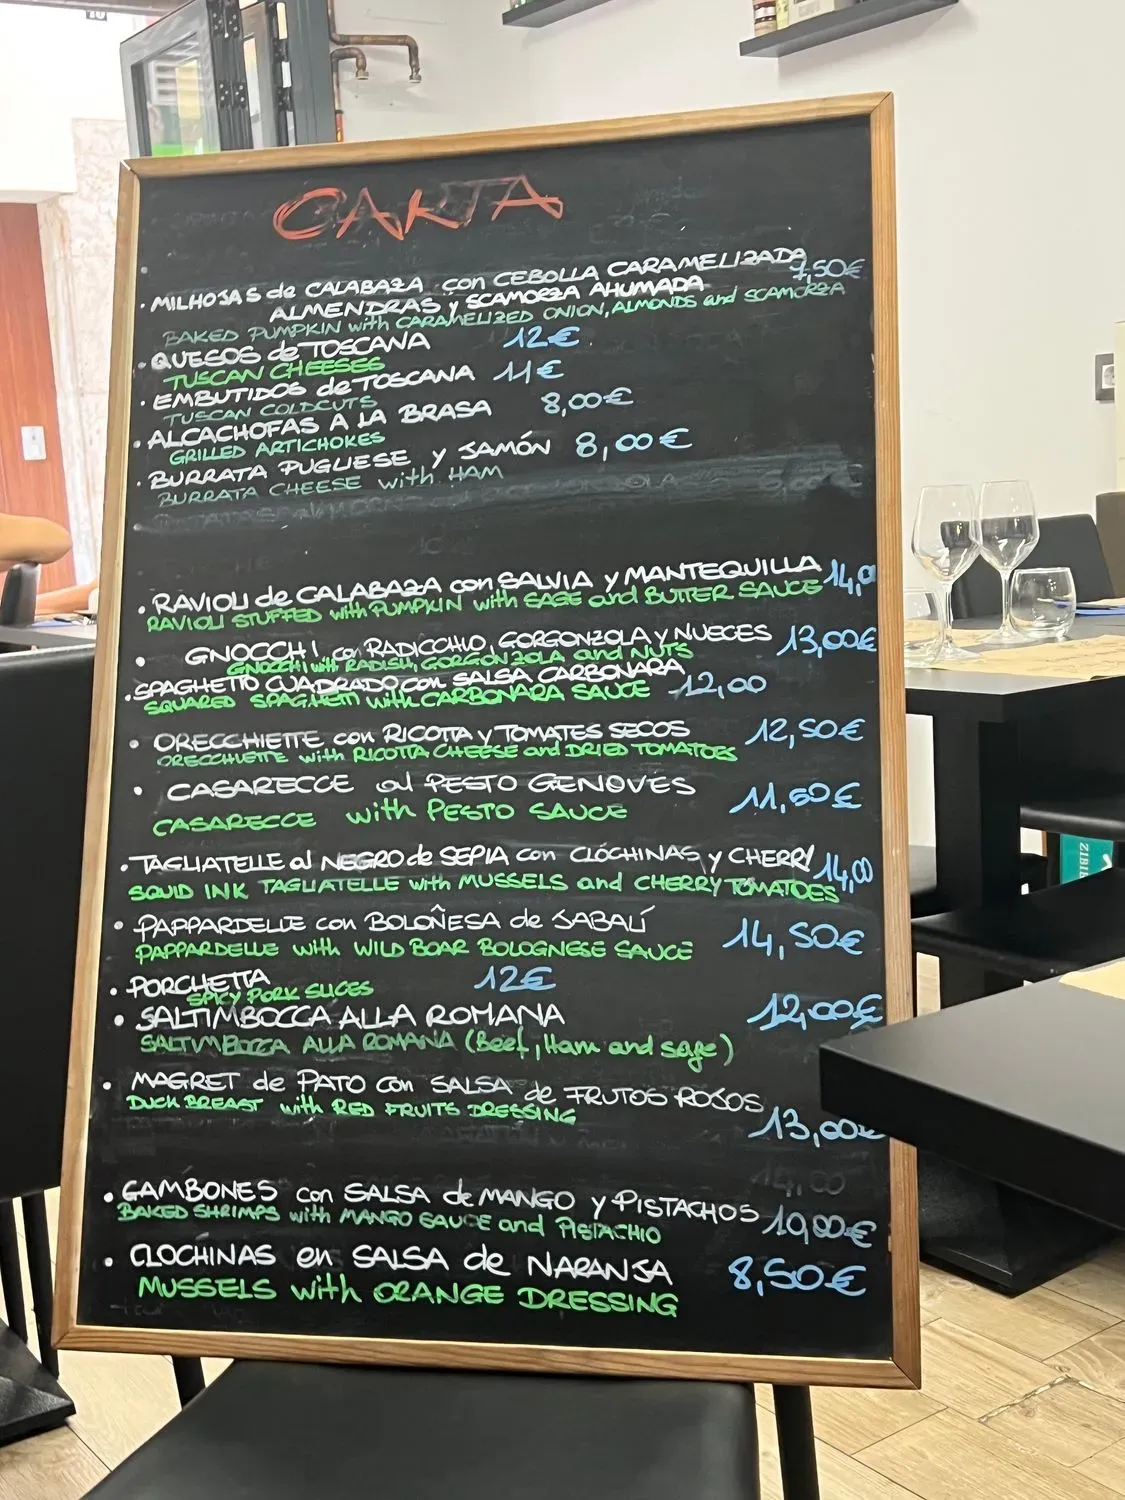 CARTA
· MILHOJAS de CALABAZA con CEBOLLA CARAMELIZADA
7,50€
ALMENDRAS y SCAMORZA AHUMADA
BAKED PUMPKIN with CARAMELIZED ONION, ALMONDS and SCAMORZA
· QUESOS de TOSCANA 12€
TUSCAN CHEESES
· EMBUTIDOS de TOSCANA 11€
TUSCAN COLDCUTS
· ALCACHOFAS A LA BRASA 8,00€
GRILLED ARTICHOKES
· BURRATA PUGLIESE y JAMÓN 8,00€
BURRATA CHEESE with HAM
· RAVIOLI de CALABAZA con SALVIA y MANTEQUILLA 14,0
RAVIOLI STUFFED with PUMPKIN with SAGE and BUTTER SAUCE
· GNOCCHI con RADICCHIO, GORGONZOLA y NUECES 13,00€
GNOCCHI with RADISH, GORGONZOLA and NUTS
· SPAGHETTO CUADRADO con SALSA CARBONARA
SQUARED SPAGHETTI with CARBONARA SAUCE 12,00
· ORECCHIETTE con RICOTTA y TOMATES SECOS 12,50€
ORECCHIETTE with RICOTTA CHEESE and DRIED TOMATOES
· CASARECCE al PESTO GENOVÉS 11,50€
CASARECCE with PESTO SAUCE
· TAGLIATELLE al NEGRO de SEPIA con CLÓCHINAS y CHERRY 14,00
SQUID INK TAGLIATELLE with MUSSELS and CHERRY TOMATOES
· PAPPARDELLE con BOLOÑESA de JABALÍ 14,50€
PAPPARDELLE with WILD BOAR BOLOGNESE SAUCE
· PORCHETTA 12€
SPICY PORK SLICES
· SALTIMBOCCA ALLA ROMANA 12,00€
SALTIMBOCCA ALLA ROMANA (Beef, Ham and sage)
· MAGRET de PATO con SALSA de FRUTOS ROJOS
DUCK BREAST with RED FRUITS DRESSING
13,00€
14,00
· GAMBONES con SALSA de MANGO y PISTACHOS 10,00€
BAKED SHRIMPS with MANGO SAUCE and PISTACHIO
· CLOCHINAS en SALSA de NARANJA 8,50€
MUSSELS with ORANGE DRESSING